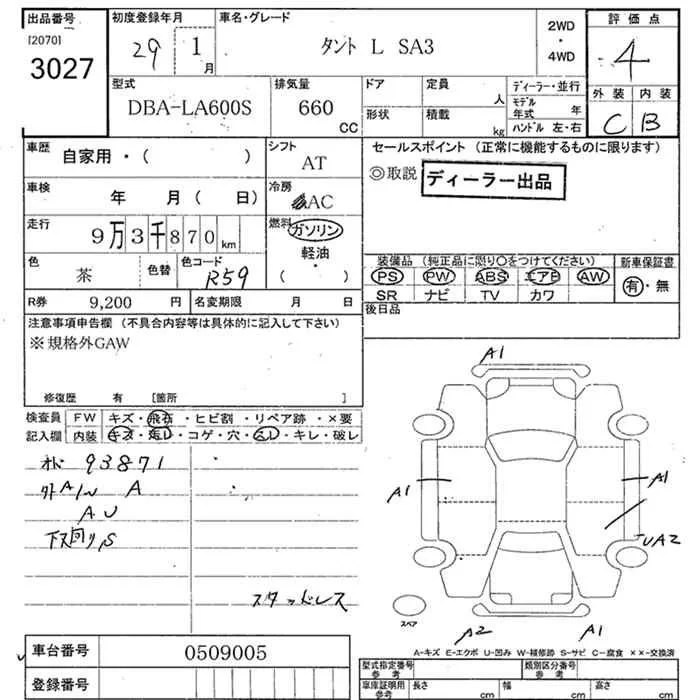 出品番号 初度登録年月 車名・グレード 評価点
[2070] 3027
29 1月 タント L SA3 2WD・4WD 4
型式 排気量 ドア 定員 人 ディーラー・並行 外装 内装
DBA-LA600S 660 CC 形状 積載 kg モデル年式 年 ハンドル 左・右 C B
車歴 自家用・( ) シフト AT セールスポイント (正常に機能するものに限ります)
◎取説 ディーラー出品
車検 年 月 ( 日) 冷房 AC
走行 9万3千870km 燃料 ガソリン・軽油・( )
色 茶 色替 色コード R59
装備品 (純正品に限り○をつけてください) 新車保証書
PS PW ABS エアB AW 有・無
SR ナビ TV カワ
R券 9,200円 名変期限 月 日 後日品
注意事項申告欄 (不具合内容等は具体的に記入して下さい)
※規格外GAW
修復歴 有 [箇所 ]
検査員 FW キズ・飛石・ヒビ割・リペア跡・×要
記入欄 内装 キズ・汚レ・コゲ・穴・スレ・キレ・破レ
93871
A
A U
下回り,S
スタッドレス
A1
A1 A1
UA2
スペア A2 A1
A-キズ E-エクボ U-凹み W-補修跡 S-サビ C-腐食 ××-交換済
車台番号 0509005
登録番号
型式指定番号 参考 類別区分番号 参考
車庫証明用 参考 長さ cm 幅 cm 高さ cm